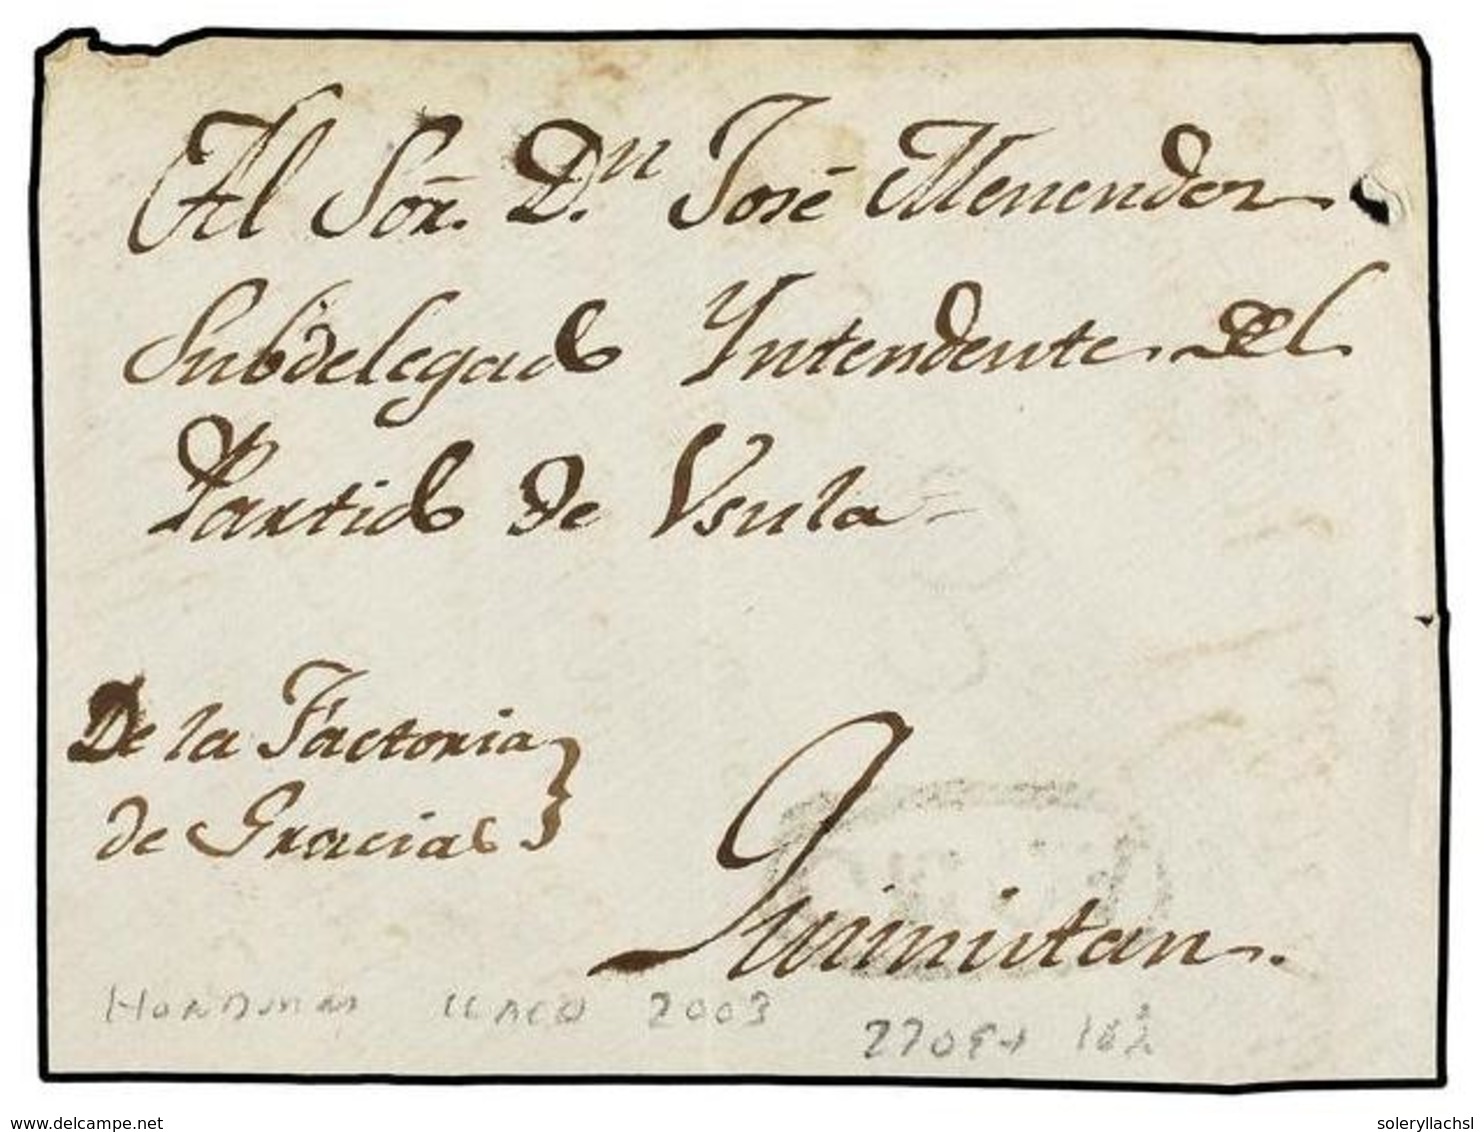 Al Sor. D.n José Menendez
Subdelegado Yntendente del
Partido de Vsula
De la Factoria
de Gracias
Quimistan.
HONDURAS 2003
www.delcampe.net
soleryllachsl